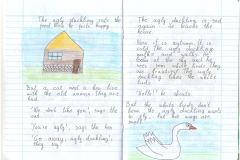 The ugly duckling gets the
food and he feels happy.
But a cat and a hen live
with the old woman. They are
bad.
"We don't like you", says the
cat.
"You're ugly", says the hen
"Go away, ugly duckling",
they say
The ugly duckling is sad
again - he leaves the
house.
Now it is autumn. It is
cold. The ugly duckling
and
looks at the sky and he
sees some white birds. They
are beautiful. The ugly
duckling likes the white
birds.
"Hello!" he shouts.
But the white birds don't
hear the ugly duckling
to fly, but his wings are
small